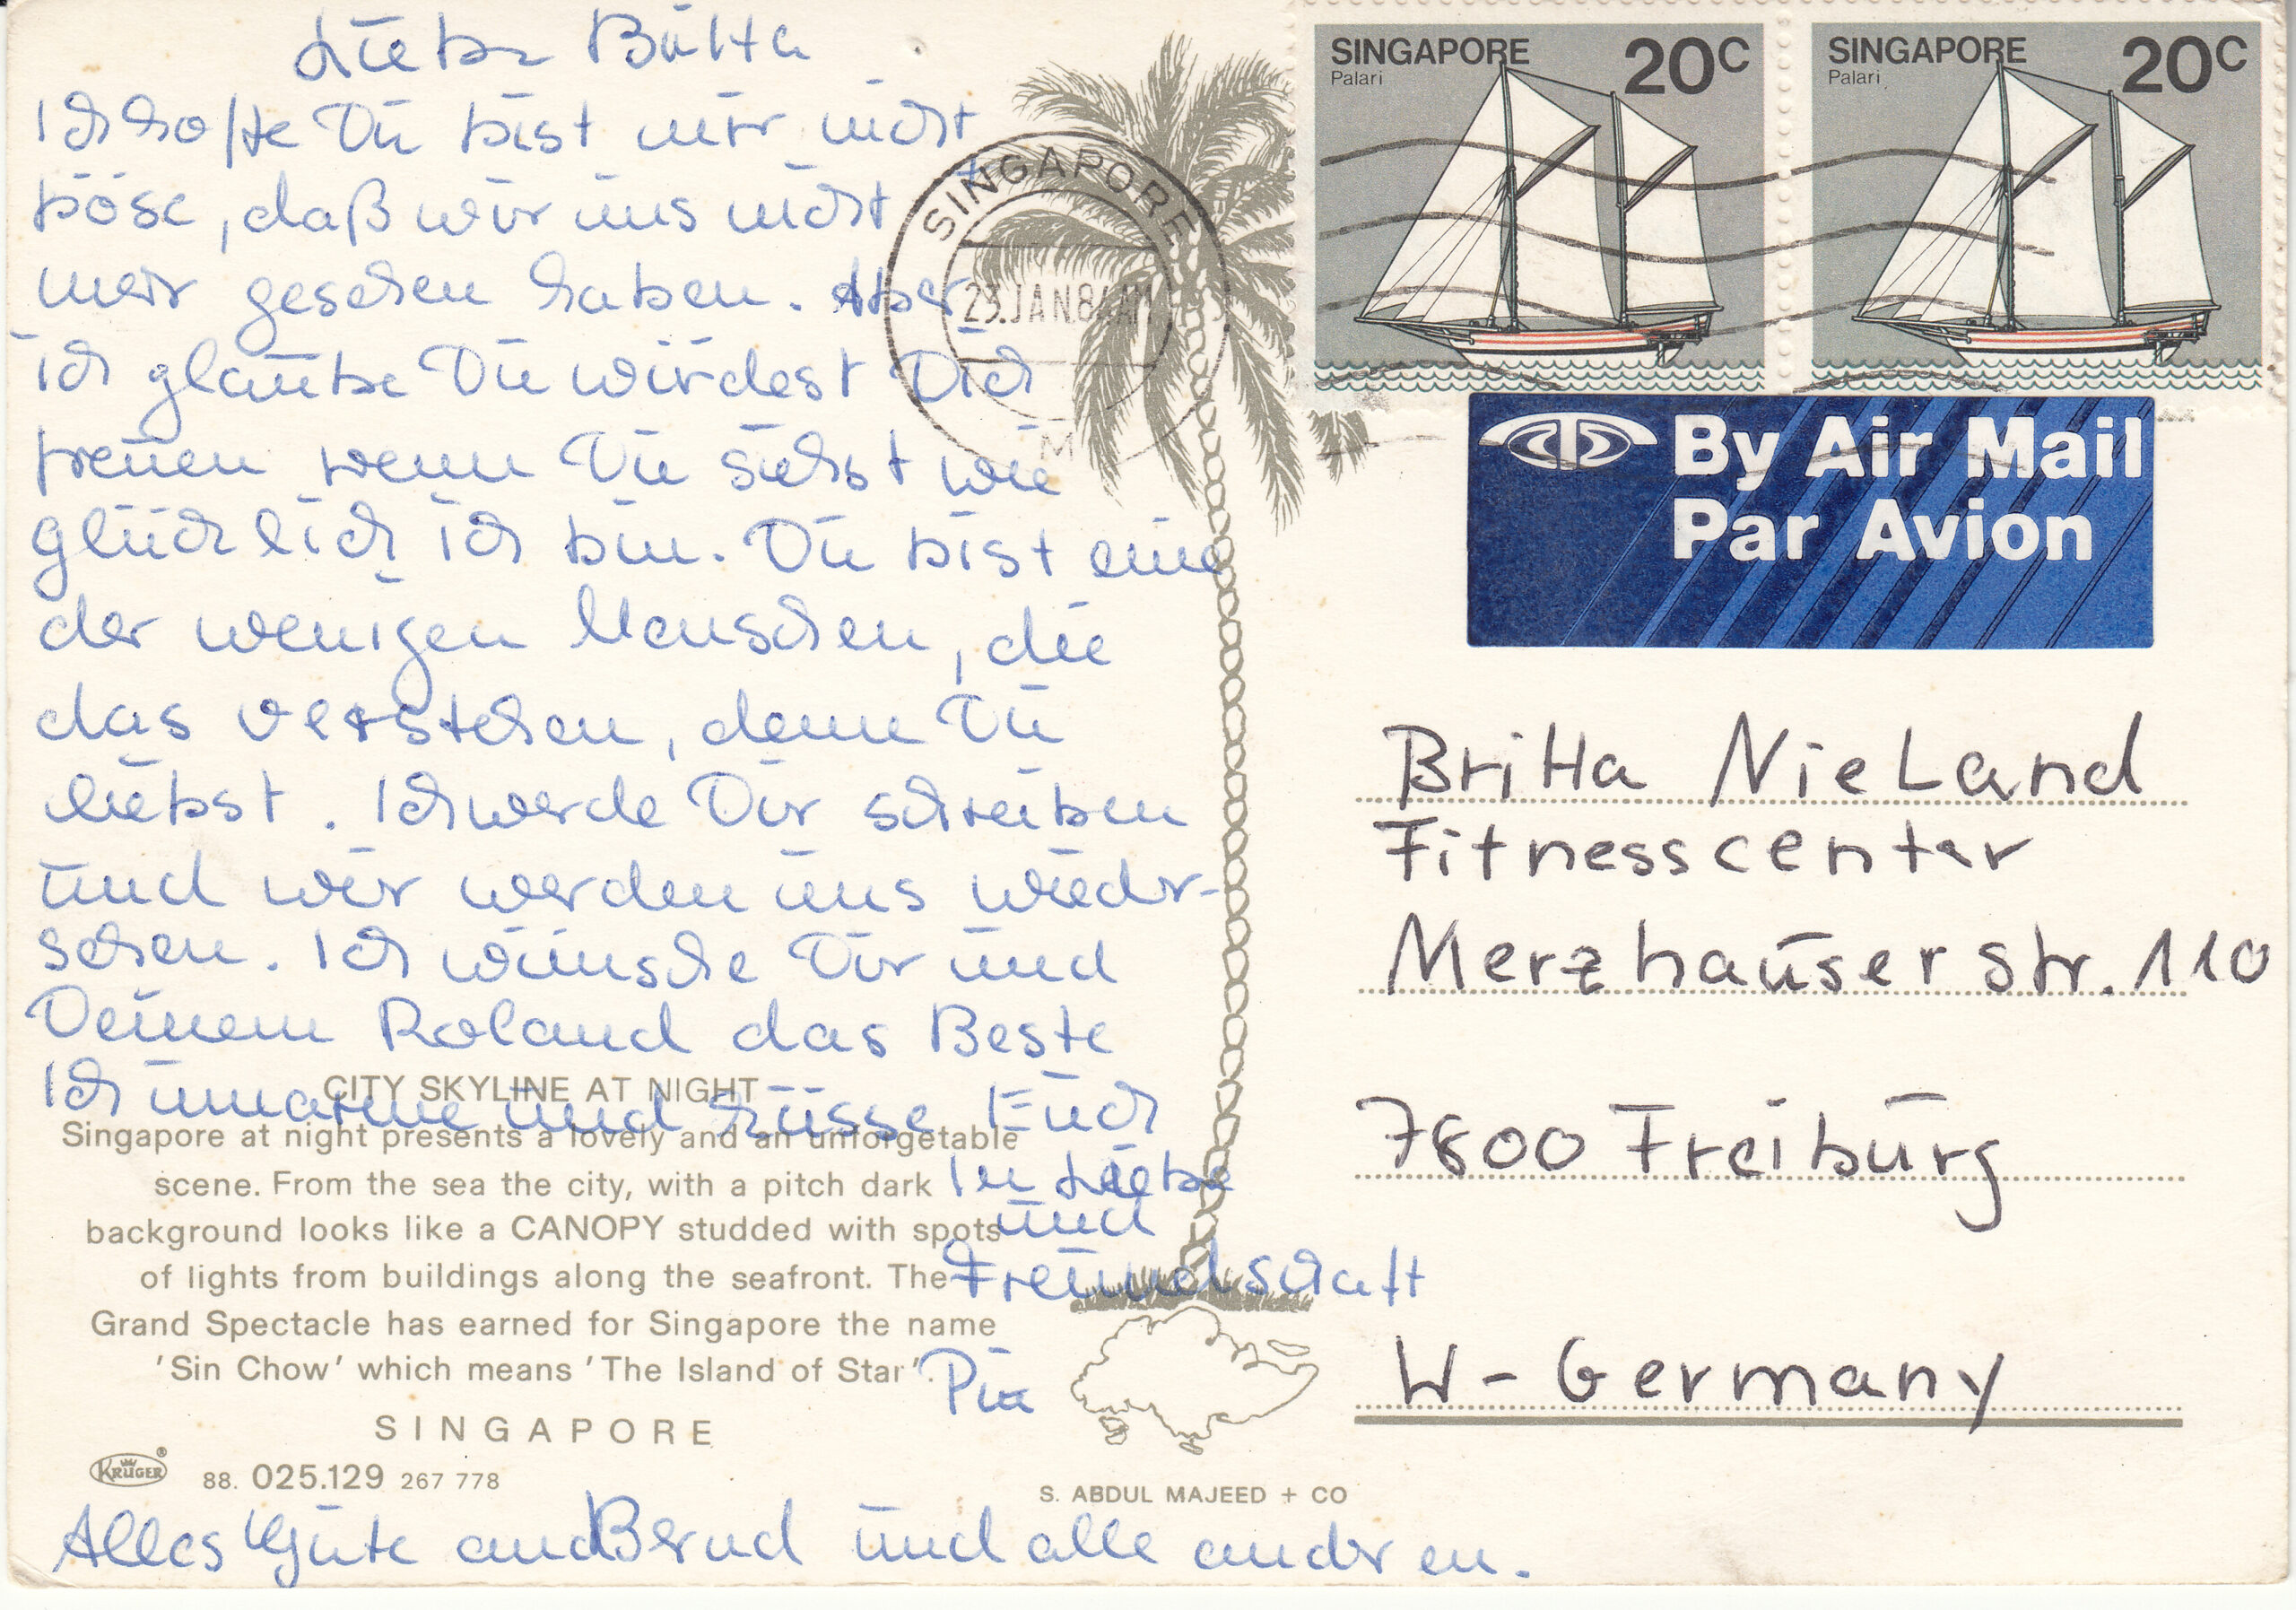 Liebe Britta
Ich hoffe Du bist mir nicht
böse, daß wir uns nicht
mehr gesehen haben. Aber
ich glaube Du würdest Dich
freuen wenn Du siehst wie
glücklich ich bin. Du bist eine
der wenigen Menschen, die
das verstehen, denn Du
liebst. Ich werde Dir schreiben
und wir werden uns wieder-
sehen. Ich wünsche Dir und
Deinem Roland das Beste
Ich umarme und küsse Euch
In Liebe
und
Freundschaft
Pia
Alles Gute and Bernd und alle anderen.
CITY SKYLINE AT NIGHT
Singapore at night presents a lovely and an unforgetable
scene. From the sea the city, with a pitch dark
background looks like a CANOPY studded with spots
of lights from buildings along the seafront. The
Grand Spectacle has earned for Singapore the name
'Sin Chow' which means 'The Island of Star'.
SINGAPORE
KRÜGER ® 88. 025.129 267 778
S. ABDUL MAJEED + CO
SINGAPORE
23.JAN.84.AM
M
SINGAPORE 20C
Palari
SINGAPORE 20C
Palari
By Air Mail
Par Avion
Britta NieLand
Fitnesscenter
Merzhauser Str. 110
7800 Freiburg
W-Germany